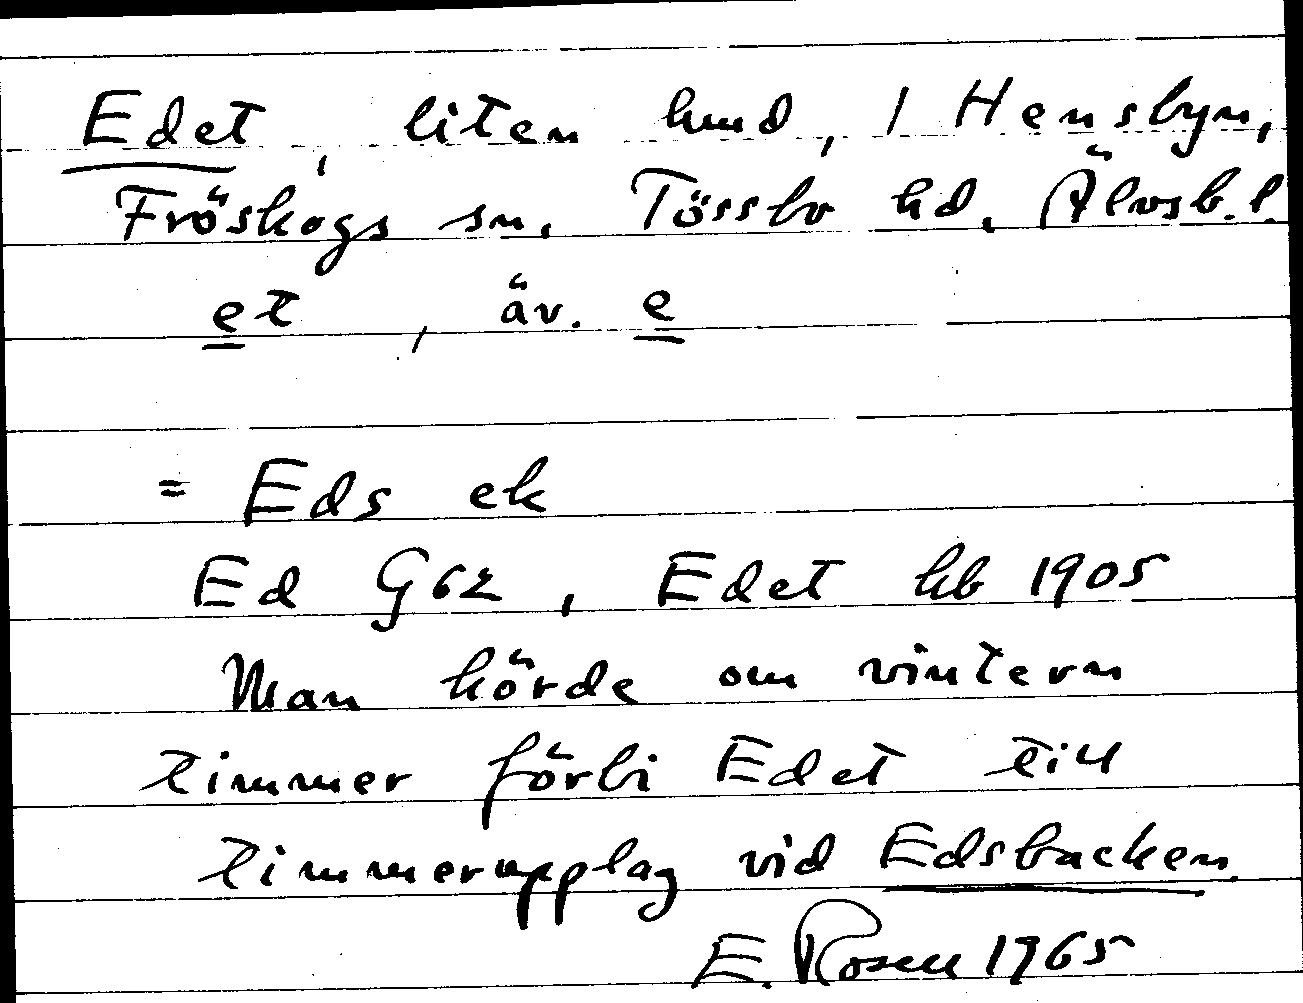 Edet, liten lund, i Hensbyn,
Fröskogs sn. Tössbo hd. Älvsb.l.
et, äv. e
= Eds ek
Ed G62, Edet hb 1905
Man körde om vintern
timmer förbi Edet till
timmerupplag vid Edsbacken.
E. Rosell 1965